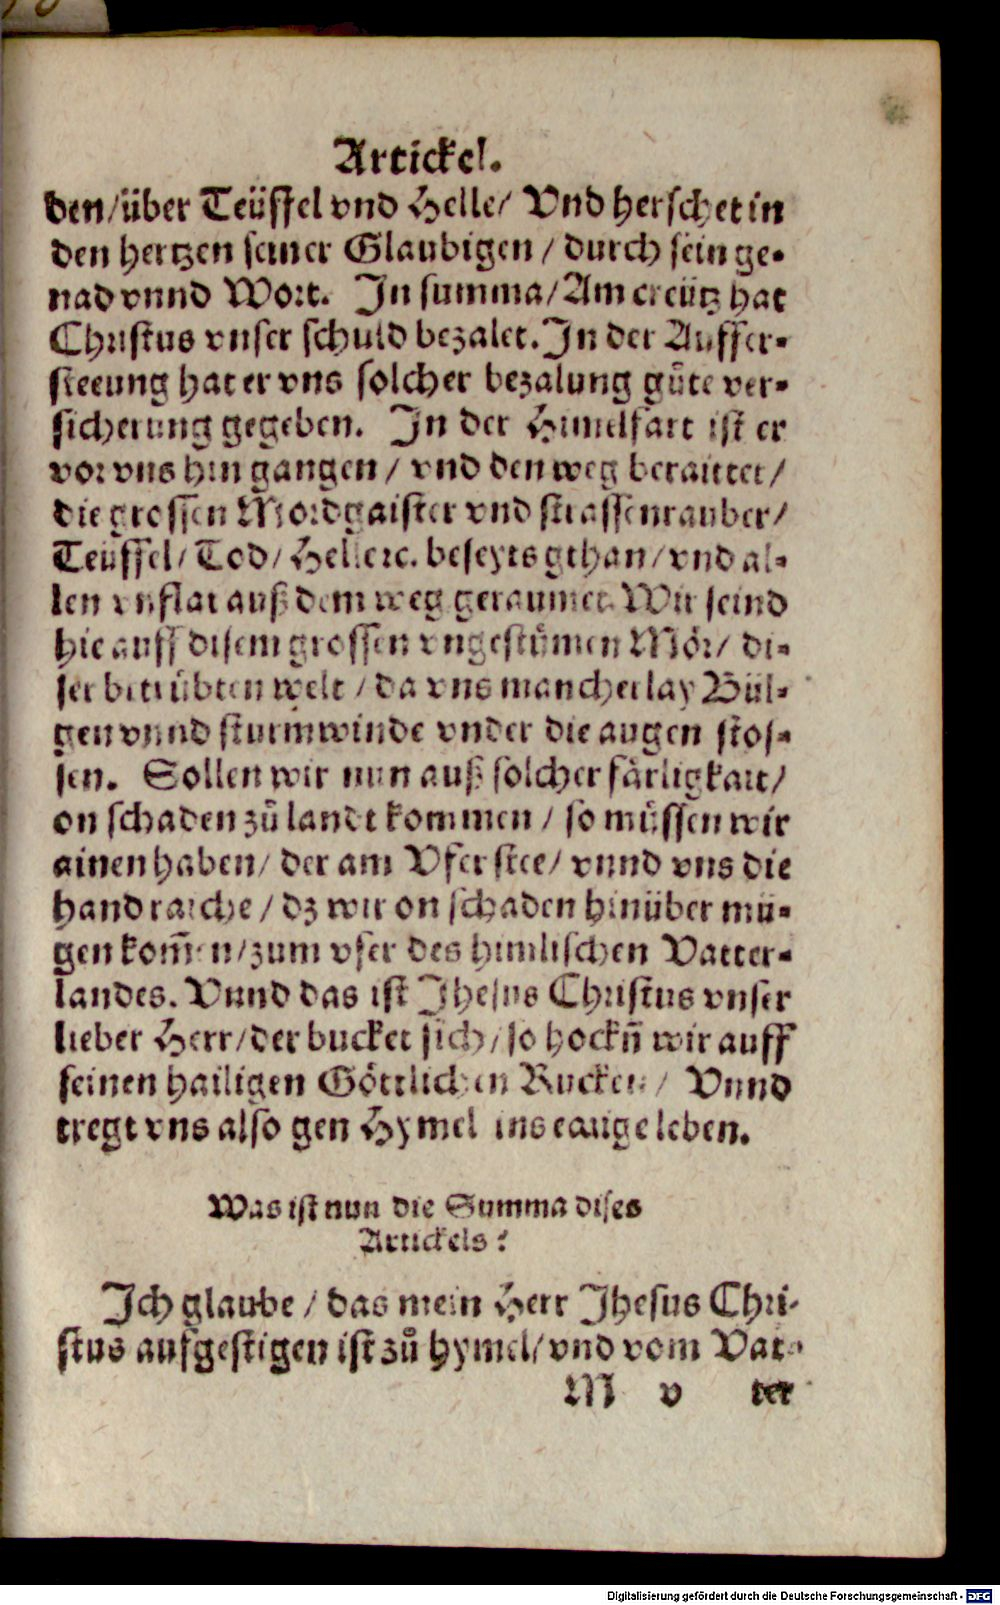 Artickel.
den/über Teüffel vnd Helle/ Vnd herschet in
den hertzen seiner Glaubigen / durch sein ge-
nad vnnd Wort. In summa/Am creütz hat
Christus vnser schuld bezalet. In der Auffer-
steeung hat er vns solcher bezalung gůte ver-
sicherung gegeben. In der Himelfart ist er
vor vns hin gangen / vnd den weg beraittet/
die grossen Mordgaister vnd strassenrauber/
Teüffel/ Tod/ Helle rc. beseyts gthan/ vnd al-
len vnflat auß dem weg geraumet. Wir seind
hie auff disem grossen vngestůmen Mör/ di-
ser betrübten welt / da vns mancherlay Bül-
gen vnnd sturmwinde vnder die augen stos-
sen. Sollen wir nun auß solcher färligkait/
on schaden zů landt kommen / so müssen wir
ainen haben/ der am Vfer stee/ vnnd vns die
hand raiche / dz wir on schaden hinüber mü-
gen kom̃en/zum vfer des himlischen Vatter-
landes. Vnnd das ist Jhesus Christus vnser
lieber Herr/der bucket sich/ so hockñ wir auff
seinen hailigen Göttlichen Rucken/ Vnnd
tregt vns also gen Hymel ins eauge leben.
Was ist nun die Summa dises
Artickels?
Ich glaube / das mein Herr Jhesus Chri-
stus aufgestigen ist zů hymel/ vnd vom Vat-
M v ter
Digitalisierung gefördert durch die Deutsche Forschungsgemeinschaft - DFG